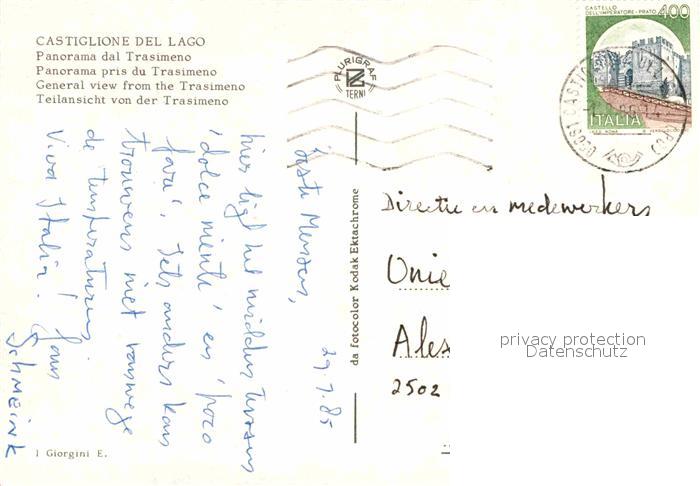 CASTIGLIONE DEL LAGO
Panorama dal Trasimeno
Panorama pris du Trasimeno
General view from the Trasimeno
Teilansicht von der Trasimeno
PLURIGRAF
TERNI
CASTELLO
DELL'IMPERATORE - PRATO 400
ITALIA
29.7.85
Beste Mensen,
hier ligt het midden tussen
'dolce niente' en 'poco
fare'. Iets anders kan
trouwens niet vanwege
de temperaturen.
Viva Italia! Jouw
SCHMEINK
da fotocolor Kodak Ektachrome
Directie en medewerkers
Unie
Ales
2502
privacy protection
Datenschutz
I Giorgini E.